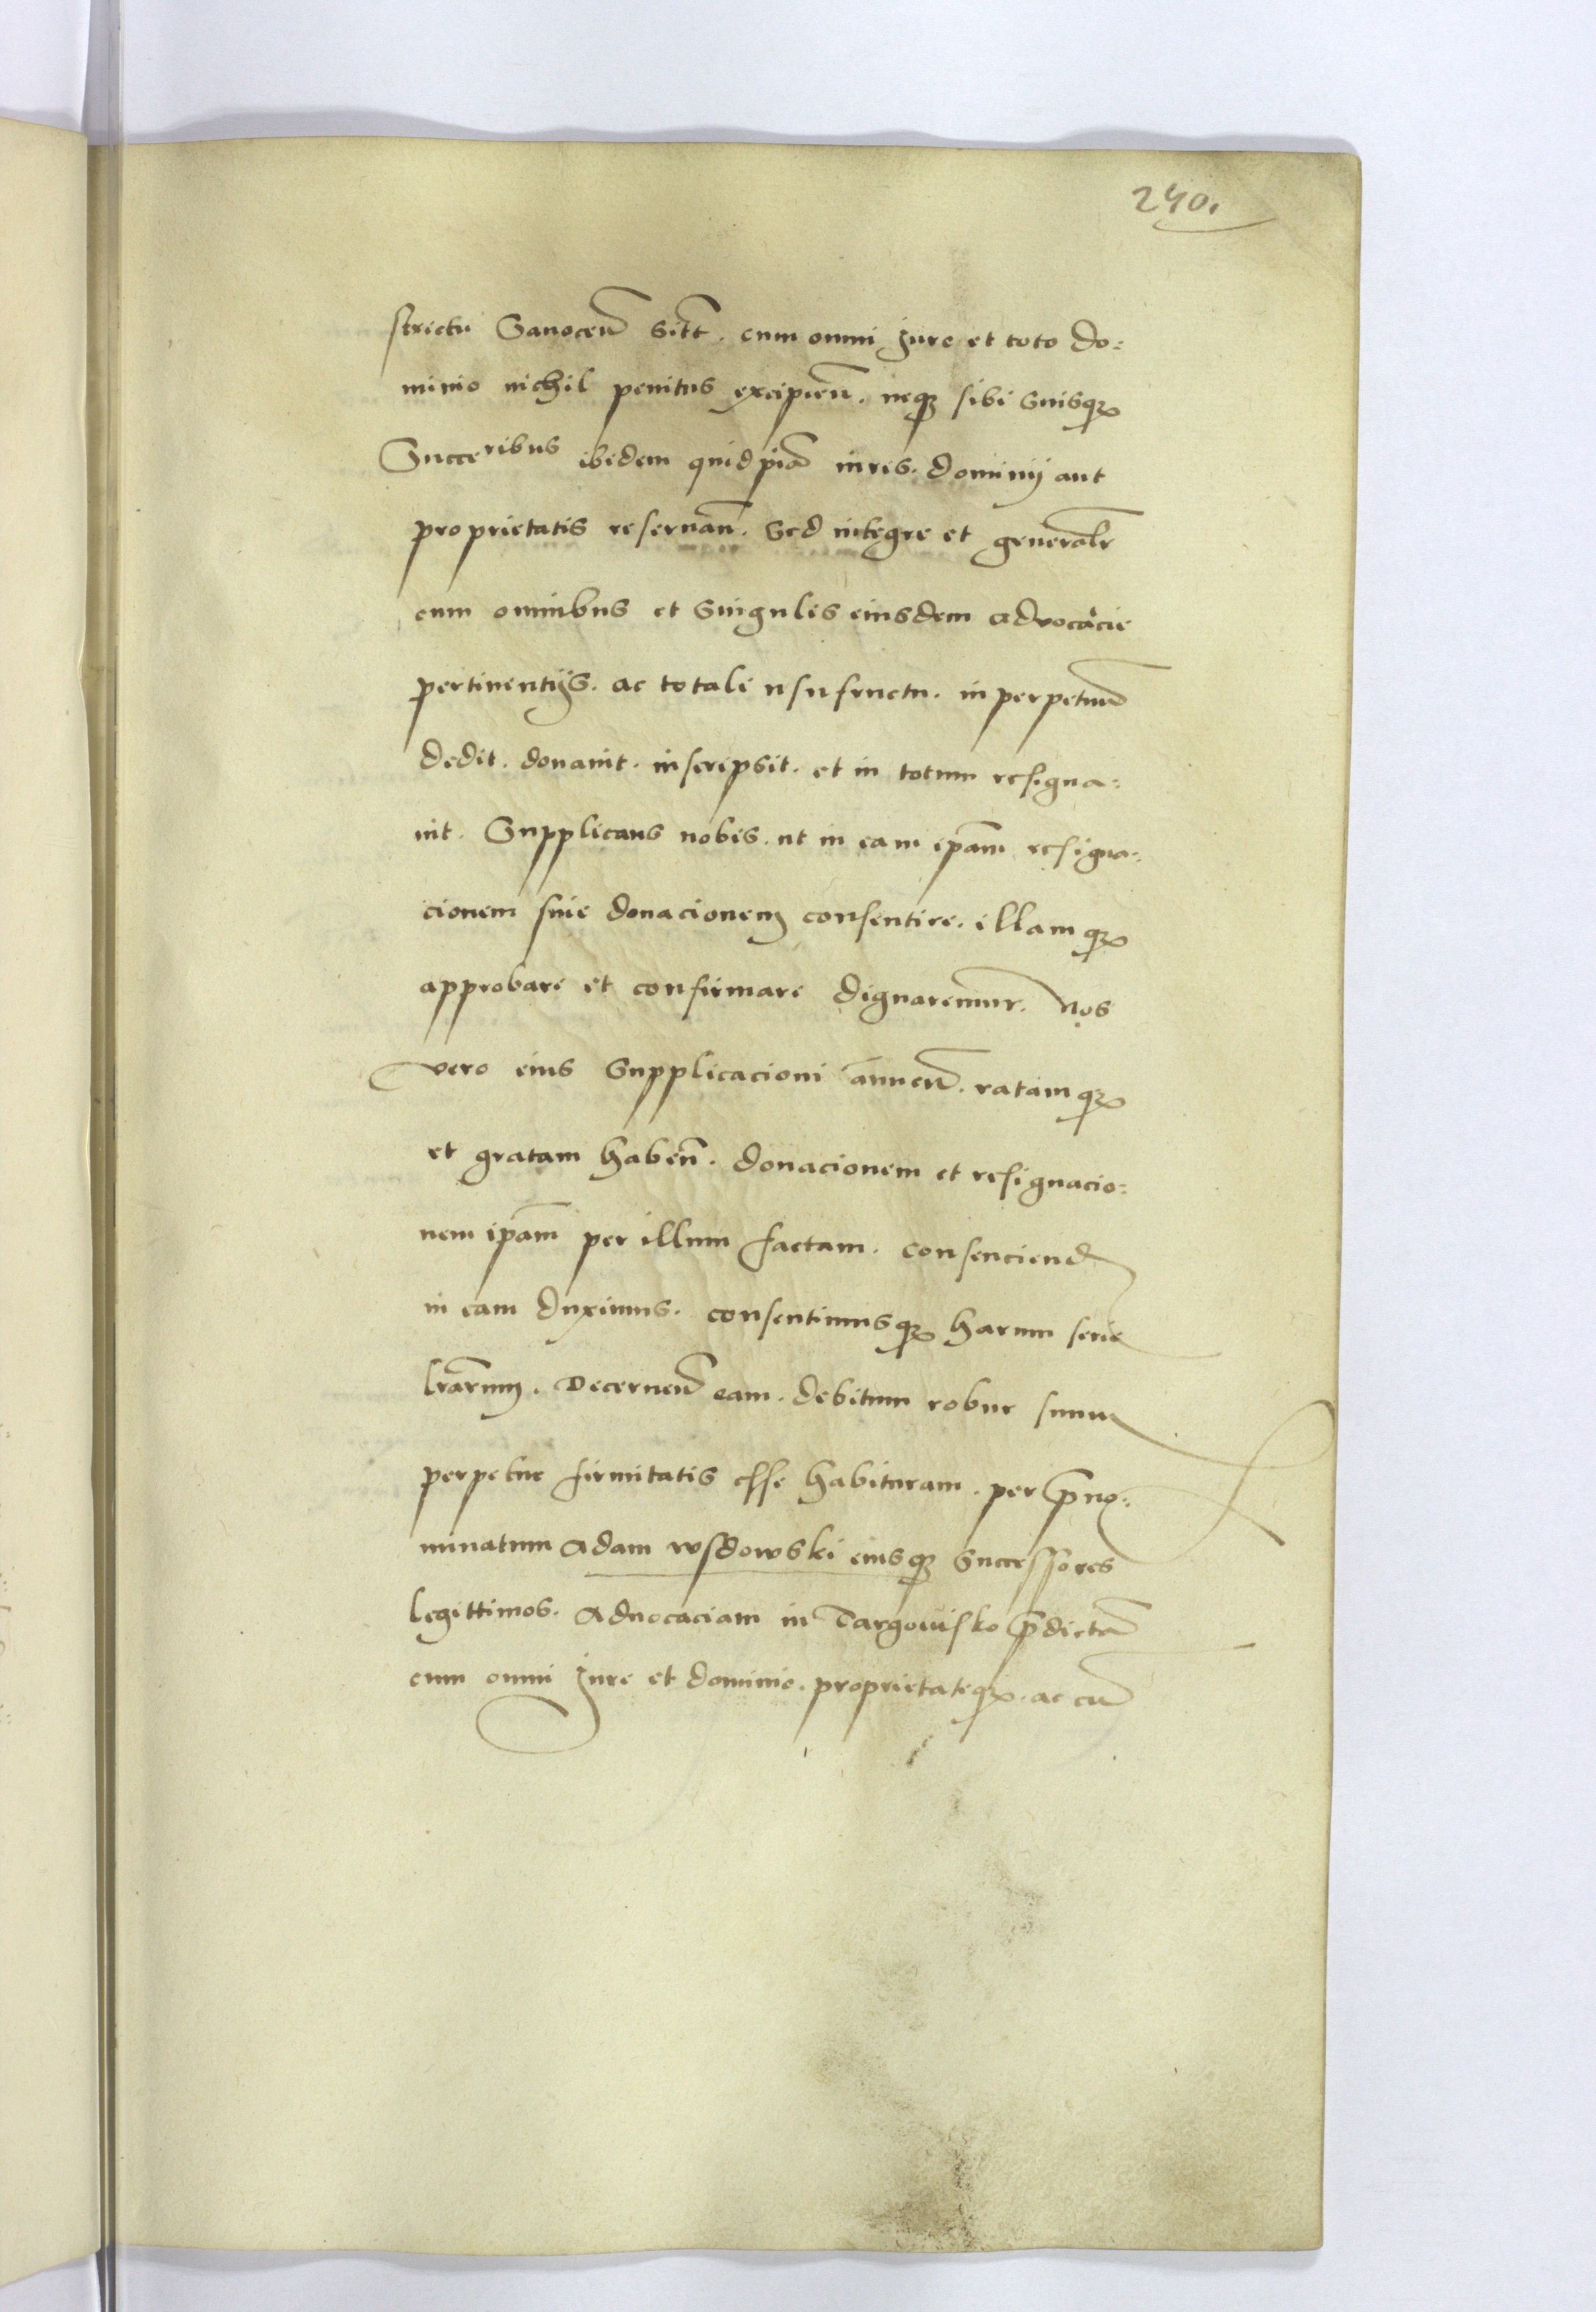 240.
strictu Sanoceñ sitt. cum omni Jure et toto do=
minio nichil penitus excipieñ. neqȝ sibi suisqȝ
Succeribus ibidem quidpiã iuris. dominij aut
proprietatis reseruañ. Sed integre et generalr̃
cum omnibus et Singulis eiusdem advocacie
pertinentijs. ac totali usufructu. in perpetuũ
dedit. donauit. inscripsit. et in totum resigna=
uit. Supplicans nobis. ut in eam ip̃am resigna=
cionem siue donacionem consentire. illamqȝ
approbare et confirmare dignaremur. Nos
vero eius Supplicacioni annueñ. ratamqȝ
et gratam habeñ. donacionem et resignacio=
nem ip̃am per illum factam. consenciend
in eam duximus. consentimusqȝ harum serie
lr̃arum. Decerneñ eam. debitum robur suum
perpetue firmitatis esse habituram. per p̃no=
minatum Adam wsdowski eiusqȝ Successores
legittimos. Aduocaciam in Targowisko p̃dictã
cum omni Jure et dominio. proprietateqȝ. ac cũ